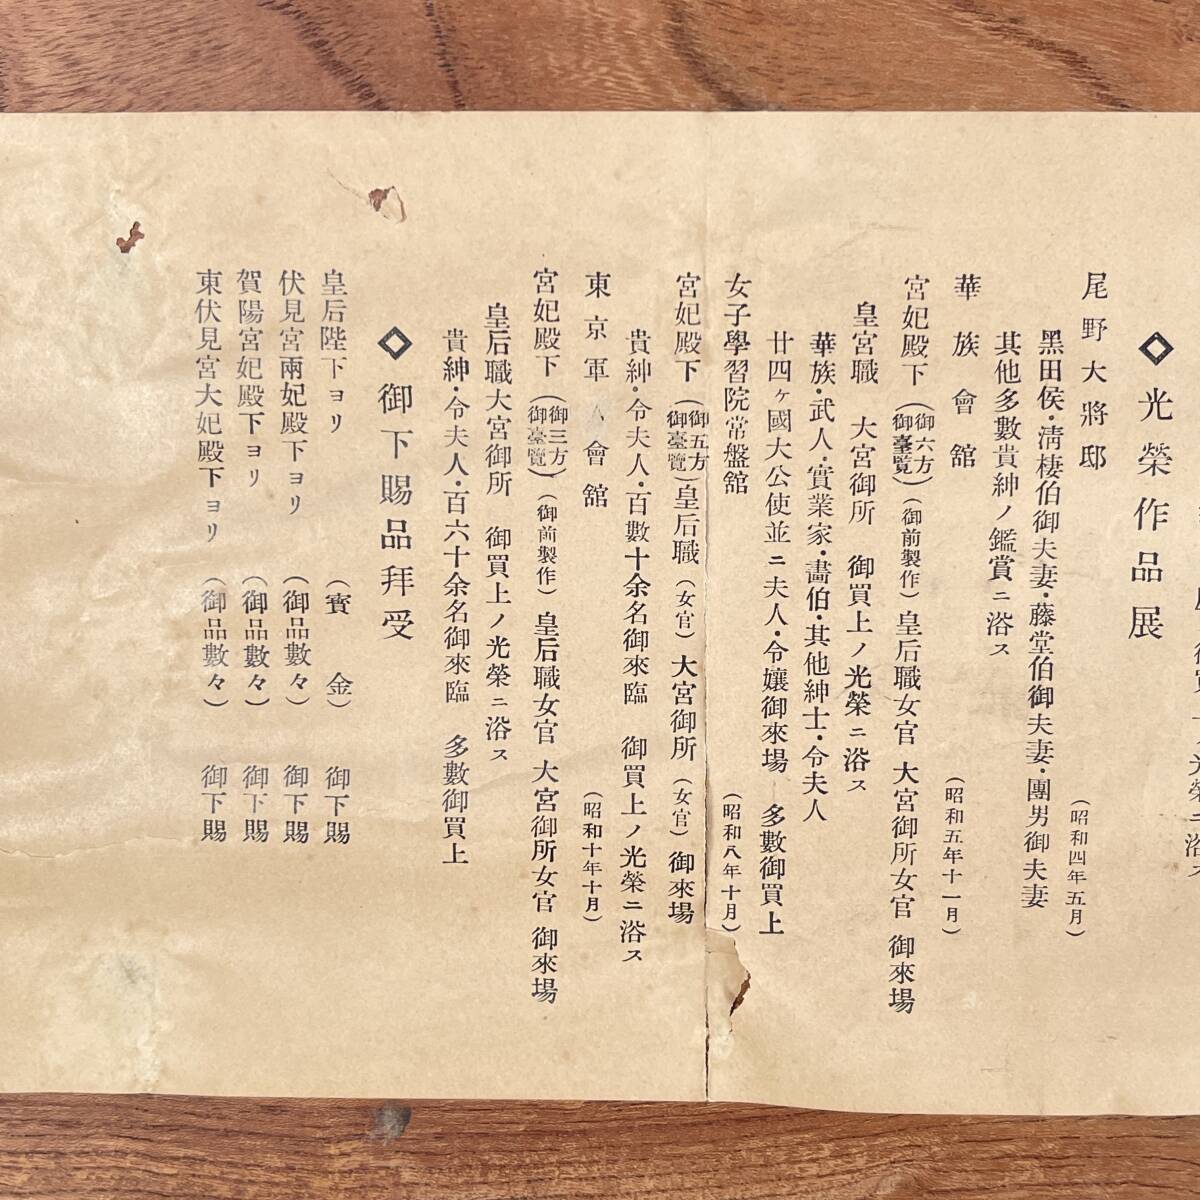 光榮ニ浴ス
◇光榮作品展
尾野大將邸 (昭和四年五月)
黑田侯・淸棲伯御夫妻・藤堂伯御夫妻・團男御夫妻
其他多數貴紳ノ鑑賞ニ浴ス
華族會舘 (昭和五年十一月)
宮妃殿下(御六方御臺覽)(御前製作)皇后職女官 大宮御所女官 御來場
皇宮職 大宮御所 御買上ノ光榮ニ浴ス
華族・武人・實業家・畵伯・其他紳士・令夫人
廿四ヶ國大公使並ニ夫人・令孃御來場 多數御買上
女子學習院常盤舘 (昭和八年十月)
宮妃殿下(御五方御臺覽)皇后職(女官)大宮御所(女官)御來場
貴紳・令夫人・百數十余名御來臨 御買上ノ光榮ニ浴ス
東京軍人會舘 (昭和十年十月)
宮妃殿下(御三方御臺覽)(御前製作)皇后職女官 大宮御所女官 御來場
皇后職大宮御所 御買上ノ光榮ニ浴ス
貴紳・令夫人・百六十余名御來臨 多數御買上
◇御下賜品拜受
皇后陛下ヨリ (賓金) 御下賜
伏見宮兩妃殿下ヨリ (御品數々) 御下賜
賀陽宮妃殿下ヨリ (御品數々) 御下賜
東伏見宮大妃殿下ヨリ (御品數々) 御下賜